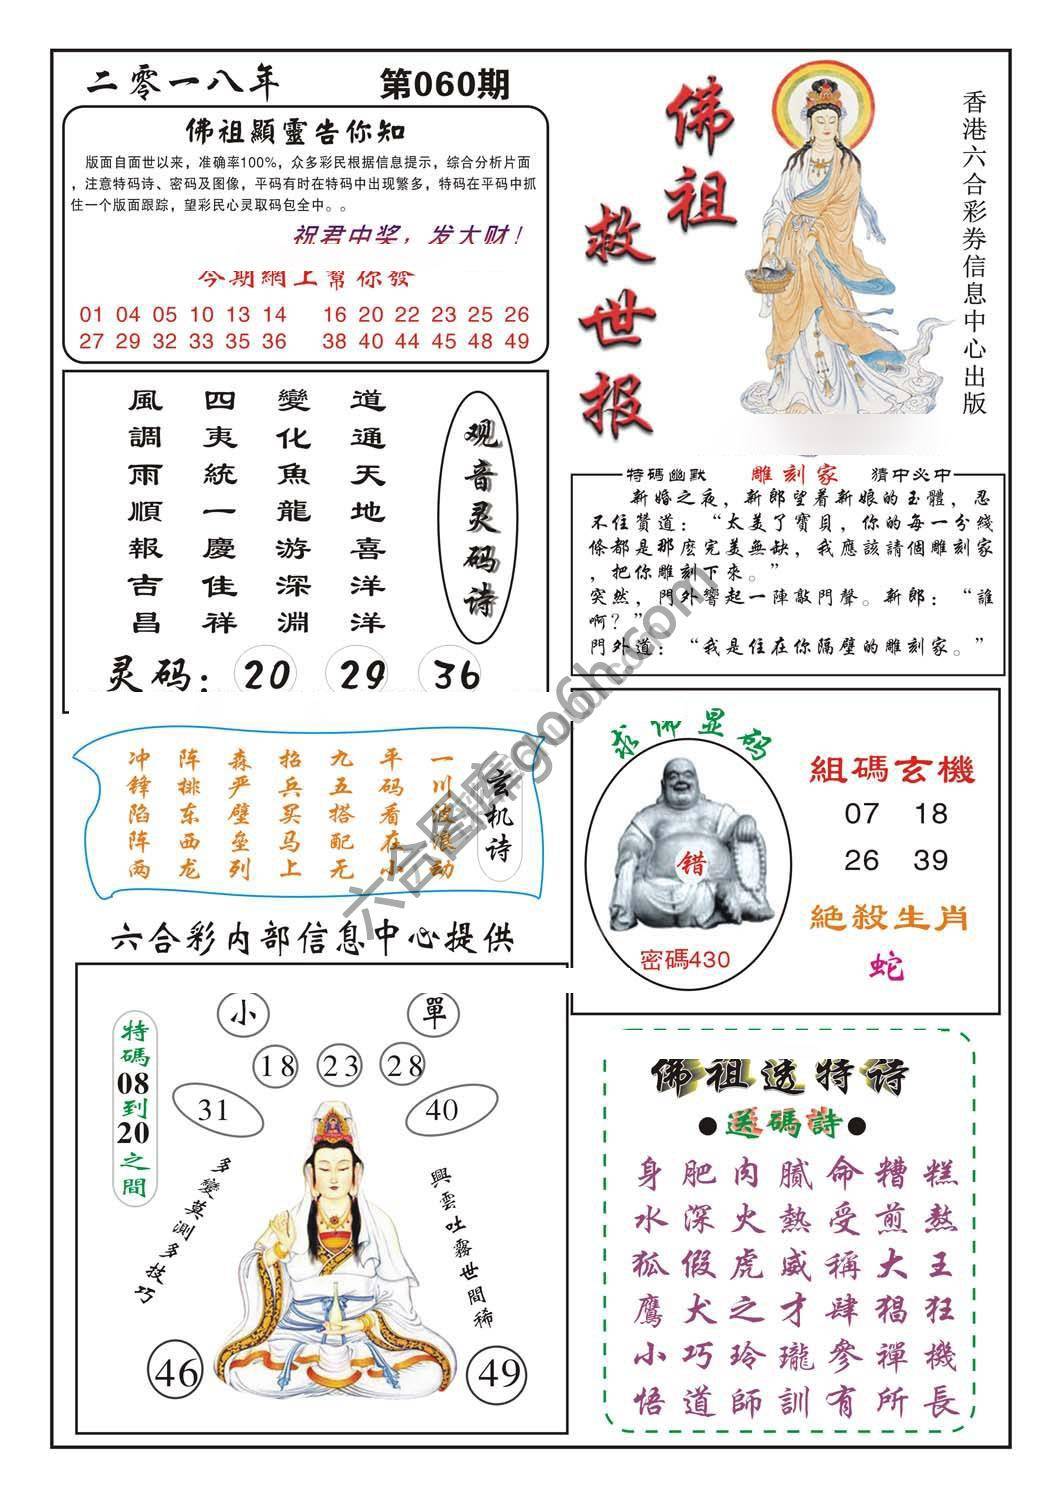 二零一八年
第060期
佛祖顯靈告你知
版面自面世以来，准确率100%，众多彩民根据信息提示，综合分析片面
，注意特码诗、密码及图像，平码有时在特码中出现繁多，特码在平码中抓
住一个版面跟踪，望彩民心灵取码包全中。。
祝君中奖，发大财！
今期網上幫你發
01 04 05 10 13 14 16 20 22 23 25 26
27 29 32 33 35 36 38 40 44 45 48 49
佛祖
救世报
香港六合彩券信息中心出版
观音灵码诗
道通天地喜洋洋
變化魚龍游深淵
四夷統一慶佳祥
風調雨順報吉昌
灵码：20 29 36
特碼幽默 雕刻家 猜中必中
新婚之夜，新郎望着新娘的玉體，忍
不住贊道：“太美了寶貝，你的每一分綫
條都是那麽完美無缺，我應該請個雕刻家
，把你雕刻下來。”
突然，門外響起一陣敲門聲。新郎：“誰
啊？”
門外道：“我是住在你隔壁的雕刻家。”
玄机诗
一川波浪动
平码看在小
九五搭配无
招兵买马上
森严壁垒列
阵排东西龙
冲锋陷阵两
六合彩内部信息中心提供
求佛显码
错
密碼430
組碼玄機
07 18
26 39
絕殺生肖
蛇
特碼08到20之間
小
單
18 23 28
31 40
多變莫測多技巧
興雲吐霧世間稀
46
49
佛祖透特诗
●送碼詩●
身肥肉膩命糟糕
水深火熱受煎熬
狐假虎威稱大王
鷹犬之才肆猖狂
小巧玲瓏參禪機
悟道師訓有所長
六合图库go6h.com